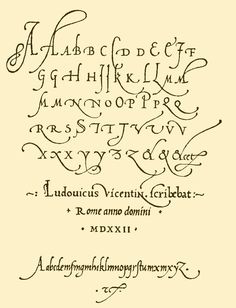 A A A B B C C D D E E F F
G G H H I J K K L L M M
M M N N O O P P P R R
R R S S T T J V U V V
X X X Y Y Z Z & & &cet
~: Ludovicus Vicentin. scribebat :~
+ Rome anno domini +
· MDXXII ·
Aabcdemfmgmhiklmnopqrstumxmxyz.